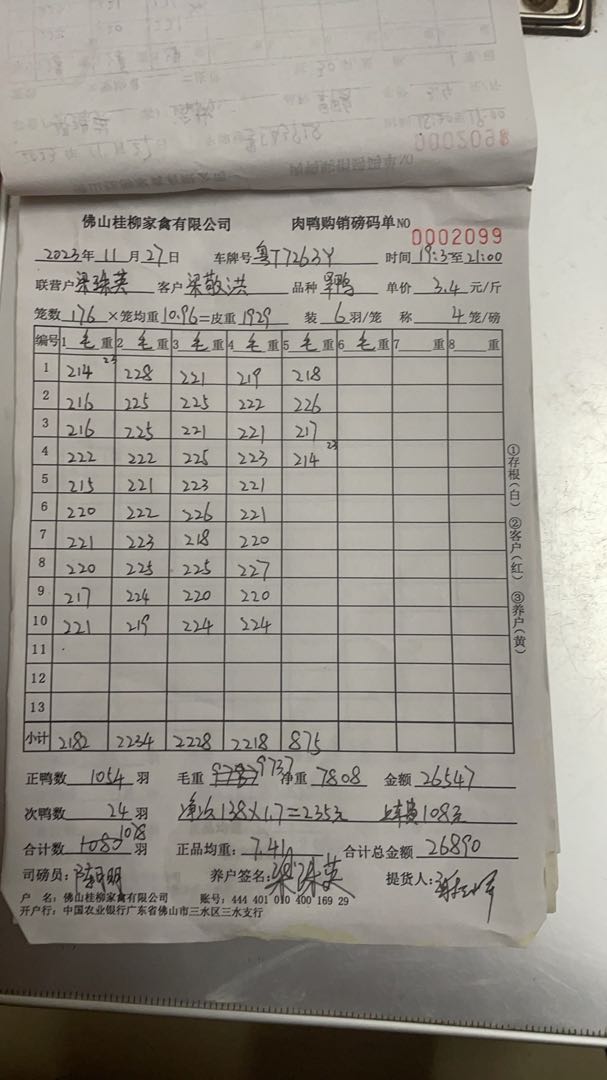 0002098
佛山桂柳家禽有限公司 肉鸭购销磅码单 NO 0002099
2023年 11月 27日 车牌号 粤T7263Y 时间 19:3至21:00
联营户 梁珠英 客户 梁敬洪 品种 单价 3.4 元/斤
笼数 176 ×笼均重 10.96=皮重 1929 装 6 羽/笼 称 4 笼/磅
编号 1 毛 重 2 毛 重 3 毛 重 4 毛 重 5 毛 重 6 毛 重 7 重 8 重
1 214 23 228 221 219 218
2 216 225 225 222 226
3 216 225 221 221 217
4 222 222 225 223 214 23
5 215 221 223 221
6 220 222 226 221
7 221 223 218 220
8 220 225 225 227
9 217 224 220 220
10 221 219 224 224
11
12
13
小计 2182 2234 2228 2218 875
①存根(白) ②客户(红) ③养户(黄)
正鸭数 1054 羽 毛重 9737 净重 7808 金额 26547
次鸭数 24 羽 净次138×1.7=235元 上车费108元
合计数 1080 1078 羽 正品均重: 7.41 合计总金额 26890
司磅员: 养户签名: 梁珠英 提货人:
户 名: 佛山桂柳家禽有限公司 账号: 444 401 010 400 169 29
开户行: 中国农业银行广东省佛山市三水区三水支行